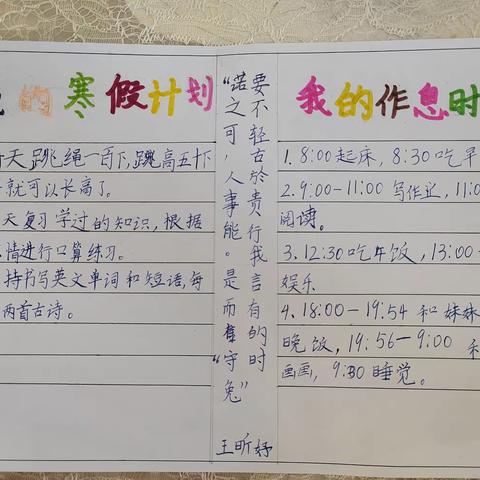 的寒假计划
天跳绳一百下,跳高五十下
就可以长高了。
天复习学过的知识,根据
情进行口算练习。
持书写英文单词和短语,每
两首古诗。
要不轻古於贵行我言有的时
“诺之可,人事能。是而 “守兔”
王昕妤
我的作息时
1. 8:00起床,8:30吃早
2. 9:00-11:00 写作业,11:0
阅读。
3. 12:30吃午饭,13:00-
娱乐
4. 18:00-19:54 和妹妹
晚饭,19:56-9:00 和
画画,9:30 睡觉。